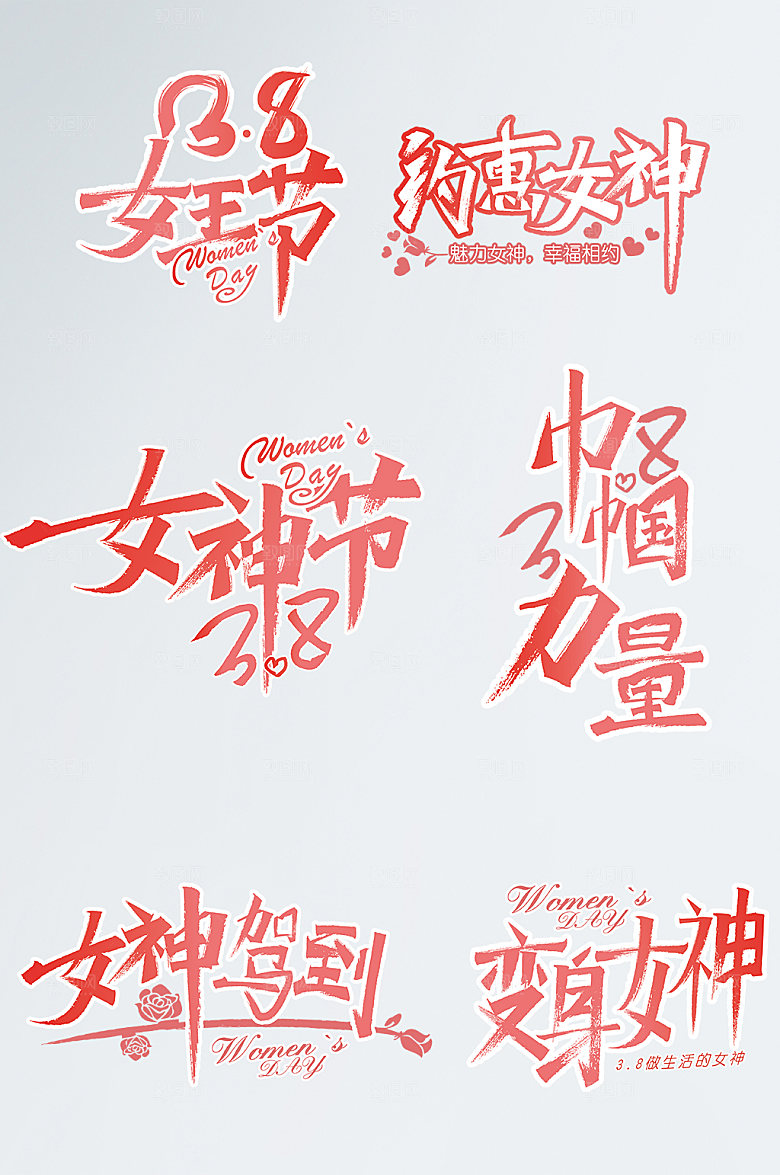 3.8
女王节
Women`s
Day
约惠女神
魅力女神，幸福相约
Women`s
Day
女神节
3.8
巾帼
3.8
力量
女神驾到
Women`s
DAY
Women`s
DAY
变身女神
3.8做生活的女神